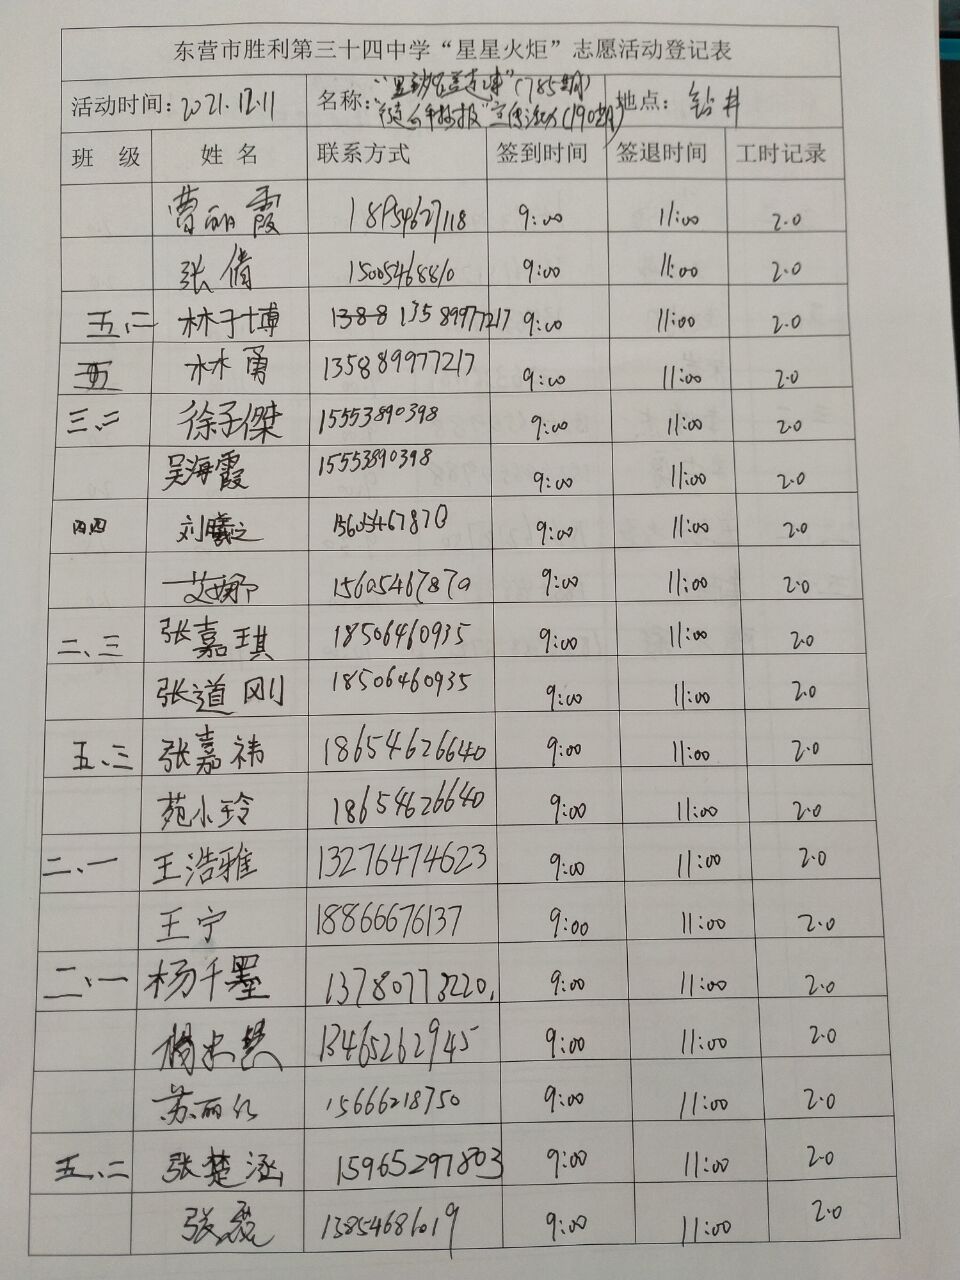 东营市胜利第三十四中学“星星火炬”志愿活动登记表
活动时间：2021.12.11 名称： (785期) 地点：钻井
宣传活动(190期)
班 级 姓 名 联系方式 签到时间 签退时间 工时记录
曹丽霞 18954627118 9:00 11:00 2.0
张倩 15005468810 9:00 11:00 2.0
五、二 林于博 13589977217 9:00 11:00 2.0
林勇 13589977217 9:00 11:00 2.0
三、二 徐子傑 15553890398 9:00 11:00 2.0
吴海霞 15553890398 9:00 11:00 2.0
四四 刘曦之 15605467870 9:00 11:00 2.0
艾娜 15605467870 9:00 11:00 2.0
二、三 张嘉琪 18506460935 9:00 11:00 2.0
张道刚 18506460935 9:00 11:00 2.0
五、三 张嘉祎 18654626640 9:00 11:00 2.0
苑小玲 18654626640 9:00 11:00 2.0
二、一 王浩雅 13276474623 9:00 11:00 2.0
王宁 18866676137 9:00 11:00 2.0
二、一 杨千墨 13780773220. 9:00 11:00 2.0
13465262945 9:00 11:00 2.0
苏丽红 15666218750 9:00 11:00 2.0
五、二 张楚涵 15965297803 9:00 11:00 2.0
张磊 13854686019 9:00 11:00 2.0